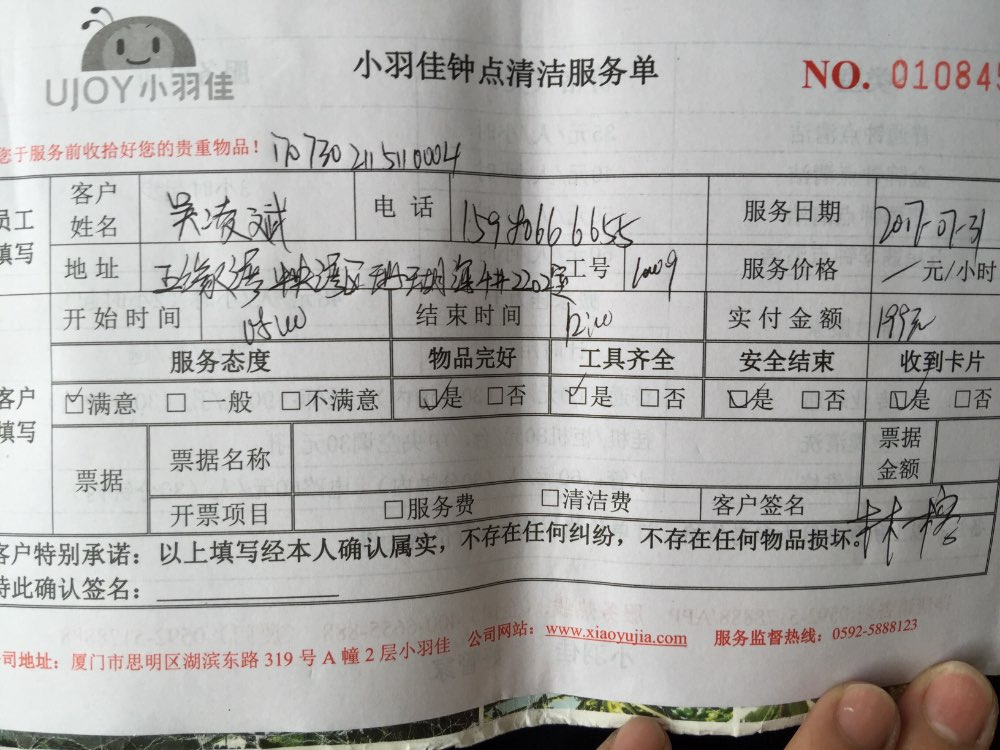 UJOY小羽佳
小羽佳钟点清洁服务单
NO. 010845
您于服务前收拾好您的贵重物品！
170730 2115110004
员工填写 客户姓名 吴凌斌 电 话 15980666655 服务日期 2017-07-31
地 址 2202室 工号 服务价格 一 元/小时
开始时间 结束时间 实付金额 199元
服务态度 物品完好 工具齐全 安全结束 收到卡片
客户填写 ☑满意 □ 一般 □不满意 ☑是 □否 ☑是 □否 ☑是 □否 ☑是 □否
票据 票据名称 票据金额
开票项目 □服务费 □清洁费 客户签名 林榕
客户特别承诺：以上填写经本人确认属实，不存在任何纠纷，不存在任何物品损坏。
特此确认签名：
公司地址：厦门市思明区湖滨东路 319 号 A 幢 2 层小羽佳 公司网站：www.xiaoyujia.com 服务监督热线：0592-5888123